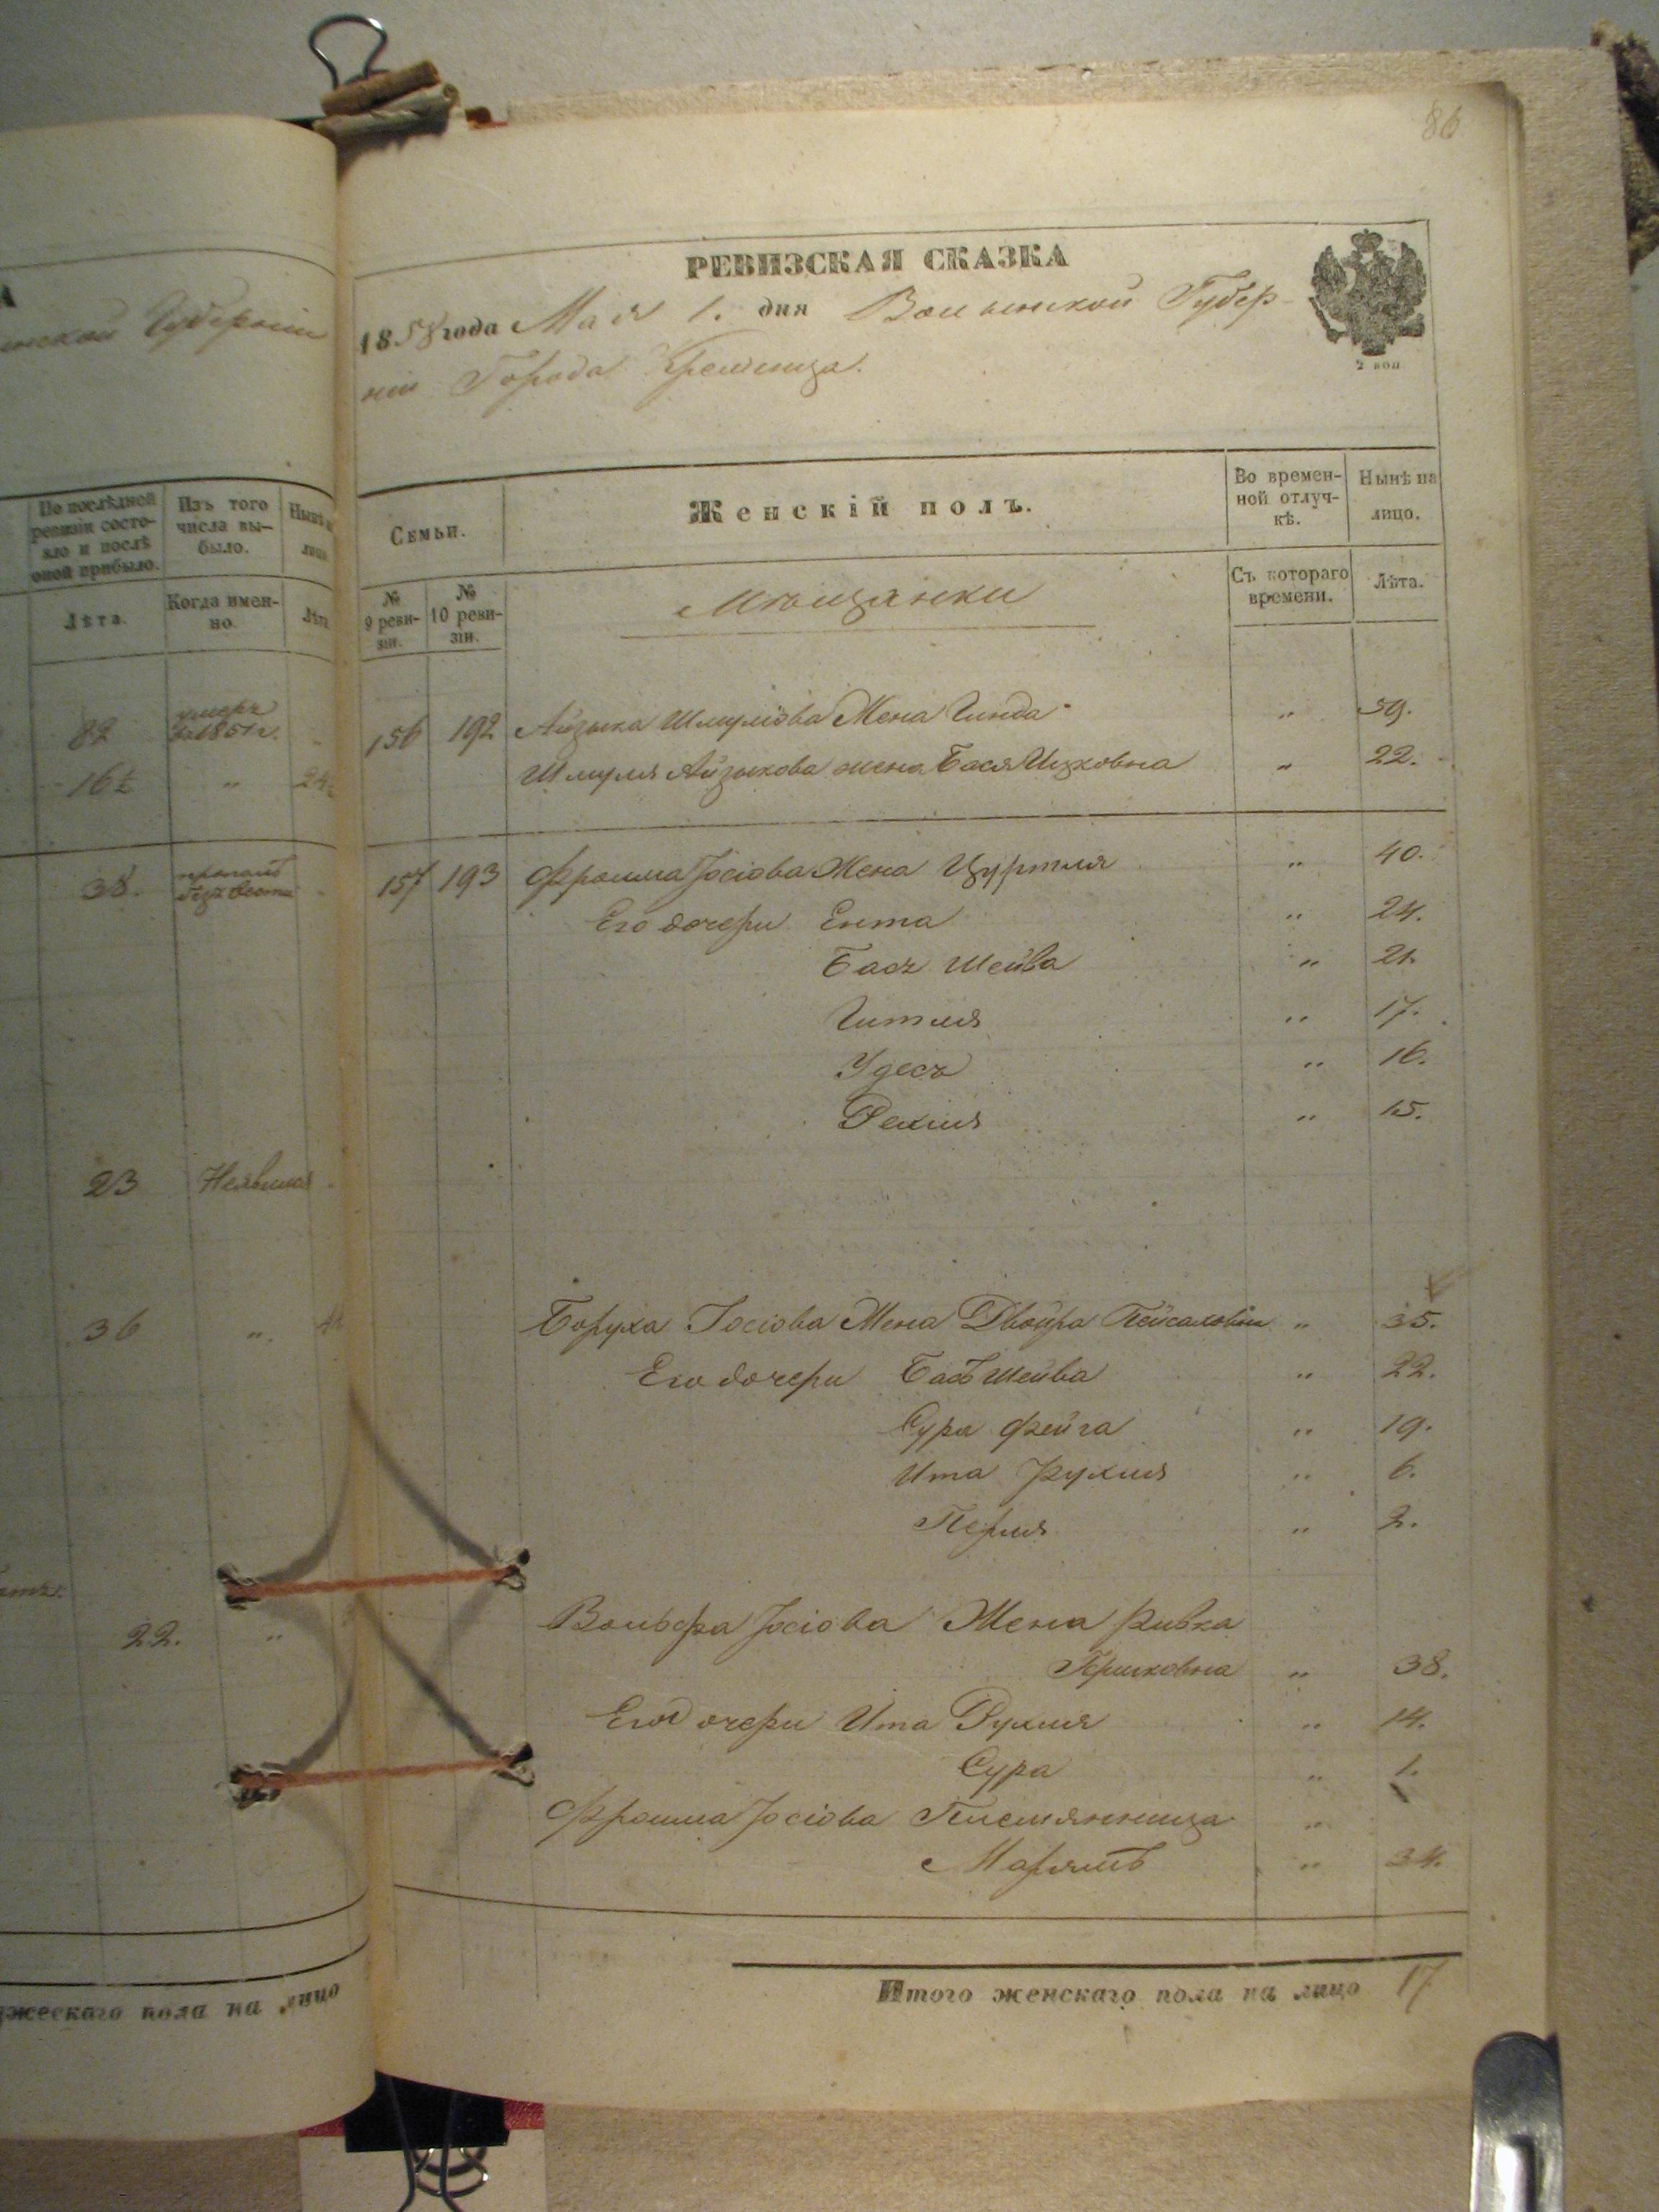 86
РЕВИЗСКАЯ СКАЗКА
1858 года Мая 1. дня Волынской Губер-
ніи Города Кременца.
2 коп
Губерніи
По послѣдней ревизіи состояло и послѣ оной прибыло.
Изъ того числа выбыло.
Лѣта.
Когда именно.
82
умеръ въ 1851 г.
16½ "
38. пропалъ безъ вести
23 Неявился
36 ".
22. "
жескаго пола на лицо
Семьи.
Женскій полъ.
Во временной отлучкѣ.
Нынѣ на лицо.
№ 9 ревизіи.
№ 10 ревизіи.
Мѣщанки
Съ котораго времени.
Лѣта.
156 192 Айзыка Шмулiова Жена Гинда " 59.
Шмуля Айзыкова жена Бася Ицковна " 22.
157 193 Фроима Іосіова Жена Цуртля " 40.
Его дочери Ента " 24.
Бась Шейва " 21.
Гитля " 17.
Удесъ " 16.
Рехля " 15.
Боруха Іосіова Жена Двойра Пейсаховна " 35.
Его дочери Басъ Шейва " 22.
Сура Фейга " 19.
Ита Рухля " 6.
Перля " 2.
Вольфа Іосіова Жена Ривка
Гершковна " 38.
Его дочери Ита Рухля " 14.
Сура " 1.
Фроима Іосіова Племянница "
Марямъ " 34.
Итого женскаго пола на лицо 17